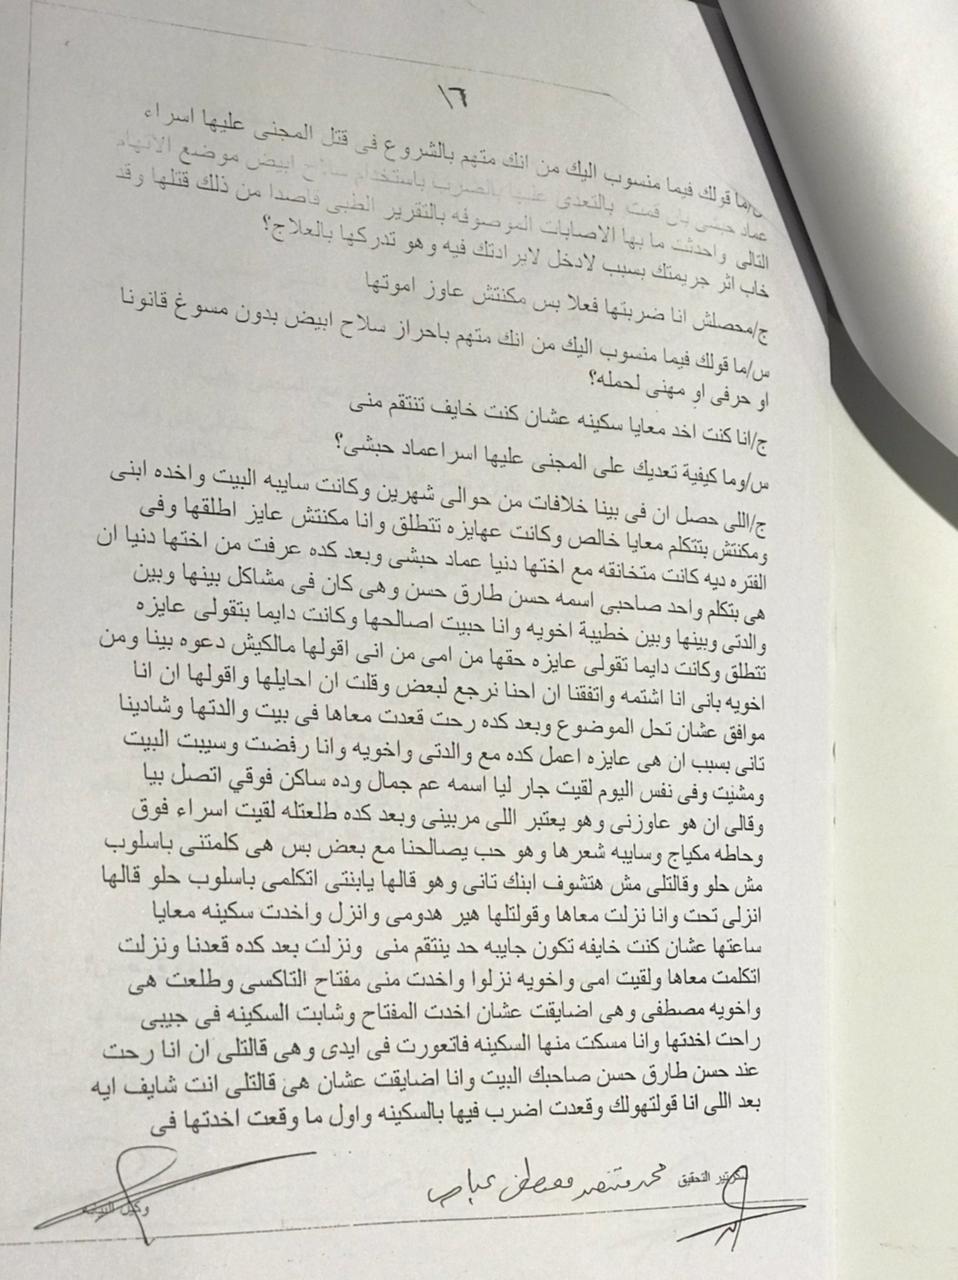 ١٦
س/ما قولك فيما منسوب اليك من انك متهم بالشروع فى قتل المجنى عليها اسراء
عماد حبشى بان قمت بالتعدى عليها بالضرب باستخدام سلاح ابيض موضع الاتهام
التالى واحدثت ما بها الاصابات الموصوفه بالتقرير الطبى قاصدا من ذلك قتلها وقد
خاب اثر جريمتك بسبب لادخل لايرادتك فيه وهو تدركها بالعلاج؟
ج/محصلش انا ضربتها فعلا بس مكنتش عاوز اموتها
س/ما قولك فيما منسوب اليك من انك متهم باحراز سلاح ابيض بدون مسوغ قانونا
او حرفى او مهنى لحمله؟
ج/انا كنت اخد معايا سكينه عشان كنت خايف تنتقم منى
س/وما كيفية تعديك على المجنى عليها اسراعماد حبشى؟
ج/اللى حصل ان فى بينا خلافات من حوالى شهرين وكانت سايبه البيت واخده ابنى
ومكنتش بتتكلم معايا خالص وكانت عهايزه تتطلق وانا مكنتش عايز اطلقها وفى
الفتره ديه كانت متخانقه مع اختها دنيا عماد حبشى وبعد كده عرفت من اختها دنيا ان
هى بتكلم واحد صاحبى اسمه حسن طارق حسن وهى كان فى مشاكل بينها وبين
والدتى وبينها وبين خطيبة اخويه وانا حبيت اصالحها وكانت دايما بتقولى عايزه
تتطلق وكانت دايما تقولى عايزه حقها من امى من انى اقولها مالكيش دعوه بينا ومن
اخويه بانى انا اشتمه واتفقنا ان احنا نرجع لبعض وقلت ان احايلها واقولها ان انا
موافق عشان تحل الموضوع وبعد كده رحت قعدت معاها فى بيت والدتها وشادينا
تانى بسبب ان هى عايزه اعمل كده مع والدتى واخويه وانا رفضت وسيبت البيت
ومشيت وفى نفس اليوم لقيت جار ليا اسمه عم جمال وده ساكن فوقي اتصل بيا
وقالى ان هو عاوزنى وهو يعتبر اللى مربينى وبعد كده طلعتله لقيت اسراء فوق
وحاطه مكياج وسايبه شعرها وهو حب يصالحنا مع بعض بس هى كلمتنى باسلوب
مش حلو وقالتلى مش هتشوف ابنك تانى وهو قالها يابنتى اتكلمى باسلوب حلو قالها
انزلى تحت وانا نزلت معاها وقولتلها هير هدومى وانزل واخدت سكينه معايا
ساعتها عشان كنت خايفه تكون جايبه حد ينتقم منى ونزلت بعد كده قعدنا ونزلت
اتكلمت معاها ولقيت امى واخويه نزلوا واخدت منى مفتاح التاكسى وطلعت هى
واخويه مصطفى وهى اضايقت عشان اخدت المفتاح وشابت السكينه فى جيبى
راحت اخدتها وانا مسكت منها السكينه فاتعورت فى ايدى وهى قالتلى ان انا رحت
عند حسن طارق حسن صاحبك البيت وانا اضايقت عشان هى قالتلى انت شايف ايه
بعد اللى انا قولتهولك وقعدت اضرب فيها بالسكينه واول ما وقعت اخدتها فى
سكرتير التحقيق محمد منتصر مصطفى عباس وكيل النيابه